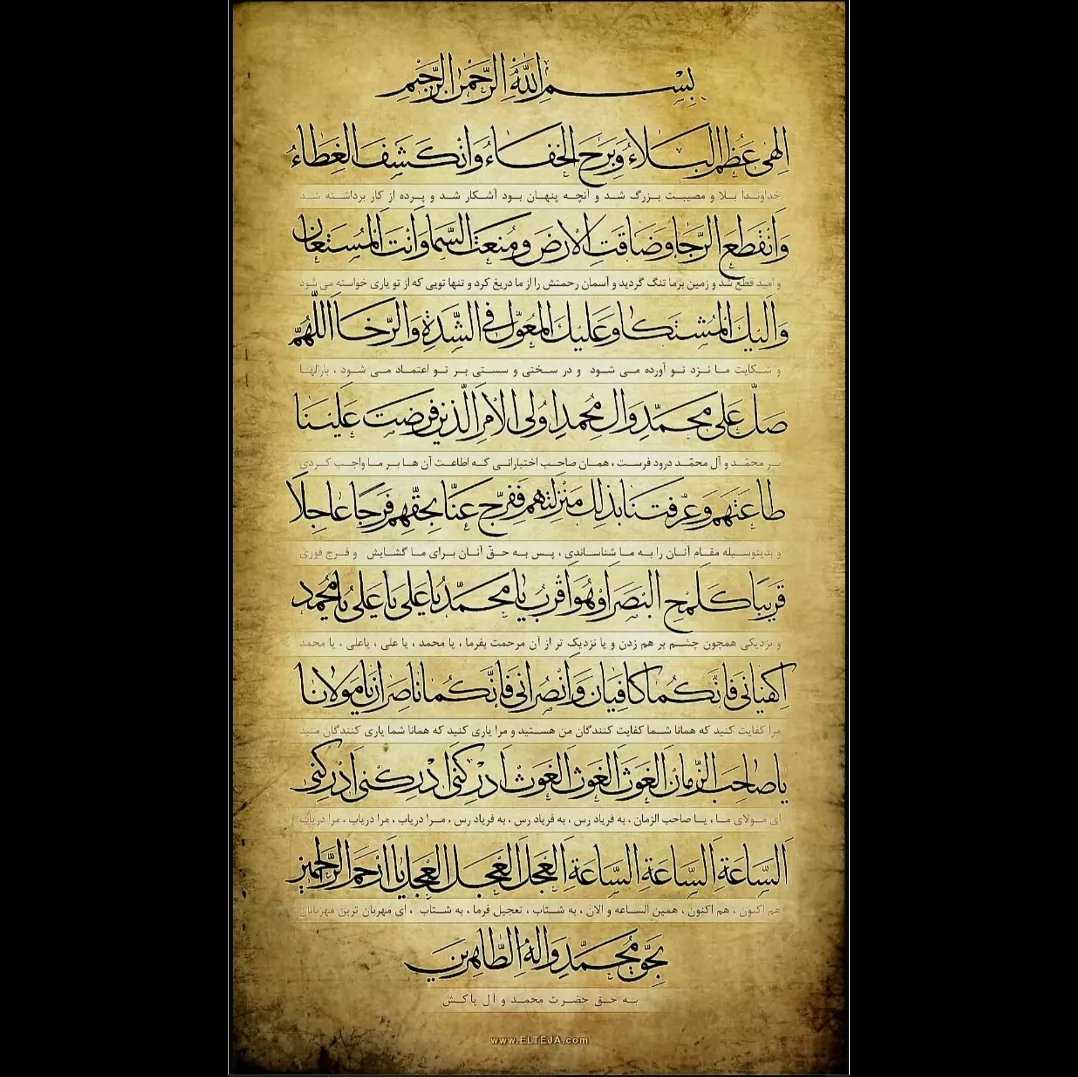 بِسْمِ اللهِ الرَّحْمٰنِ الرَّحِیْمِ
اِلٰهی عَظُمَ الْبَلاٰءُ وَبَرِحَ الْخَفاٰءُ وَانْکَشَفَ الْغِطاٰءُ
خداوندا بلا و مصیبت بزرگ شد و آنچه پنهان بود آشکار شد و پرده از کار برداشته شد
وَانْقَطَعَ الرَّجاٰ وَضاٰقَتِ الْاَرْضُ وَمُنِعَتِ السَّماٰ وَاَنْتَ الْمُسْتَعاٰنُ
و امید قطع شد و زمین برما تنگ گردید و آسمان رحمتش را از ما دریغ کرد و تنها تویی که از تو یاری خواسته می شود
وَاِلَیْکَ الْمُشْتَکاٰ وَعَلَیْکَ الْمُعَوَّلُ فِی الشِّدَّةِ وَالرَّخاٰ اَللّٰهُمَّ
و شکایت ما نزد تو آورده می شود و در سختی و سستی بر تو اعتماد می شود ، بارالها
صَلِّ عَلیٰ مُحَمَّدٍ وَاٰلِ مُحَمَّدٍ اُولِی الْاَمْرِ الَّذینَ فَرَضْتَ عَلَیْنٰا
بر محمّد و آل محمّد درود فرست ، همان صاحب اختیارانی که اطاعت آن ها بر ما واجب کردی
طاٰعَتَهُمْ وَعَرَّفْتَنٰا بِذٰلِکَ مَنْزِلَتَهُمْ فَفَرِّجْ عَنّٰا بِحَقِّهِمْ فَرَجاً عاٰجِلاً
و بدینوسیله مقام آنان را به ما شناساندی ، پس به حقّ آنان برای ما گشایش و فرج فوری
قَریباً کَلَمْحِ الْبَصَرِ اَوْ هُوَ اَقْرَبُ یاٰ مُحَمَّدُ یاٰ عَلِیُّ یاٰ عَلِیُّ یاٰ مُحَمَّدُ
و نزدیکی همچون چشم بر هم زدن و یا نزدیک تر از آن مرحمت بفرما ، یا محمد ، یا علی ، یاعلی ، یا محمد
اِکْفِیاٰنی فَاِنَّکُماٰ کاٰفِیاٰنِ وَانْصُراٰنی فَاِنَّکُماٰ ناٰصِراٰنِ یاٰ مَوْلاٰنٰا
مرا کفایت کنید که همانا شما کفایت کنندگان من هستید و مرا یاری کنید که همانا شما یاری کنندگان منید
یاٰ صاٰحِبَ الزَّماٰنِ الْغَوْثَ الْغَوْثَ الْغَوْثَ اَدْرِکْنی اَدْرِکْنی اَدْرِکْنی
ای مولای ما ، یا صاحب الزمان ، به فریاد رس ، به فریاد رس ، به فریاد رس ، مرا دریاب ، مرا دریاب ، مرا دریاب
اَلسّٰاعَةَ السّٰاعَةَ السّٰاعَةَ الْعَجَلَ الْعَجَلَ الْعَجَلَ یاٰ اَرْحَمَ الرّٰاحِمینَ
هم اکنون ، هم اکنون ، همین الساعه و الان ، به شتاب ، تعجیل فرما ، به شتاب ، ای مهربان ترین مهربانان
بِحَقِّ مُحَمَّدٍ وَاٰلِهِ الطّٰاهِرینَ
به حق حضرت محمد و آل پاکش
www.ELTEJA.com